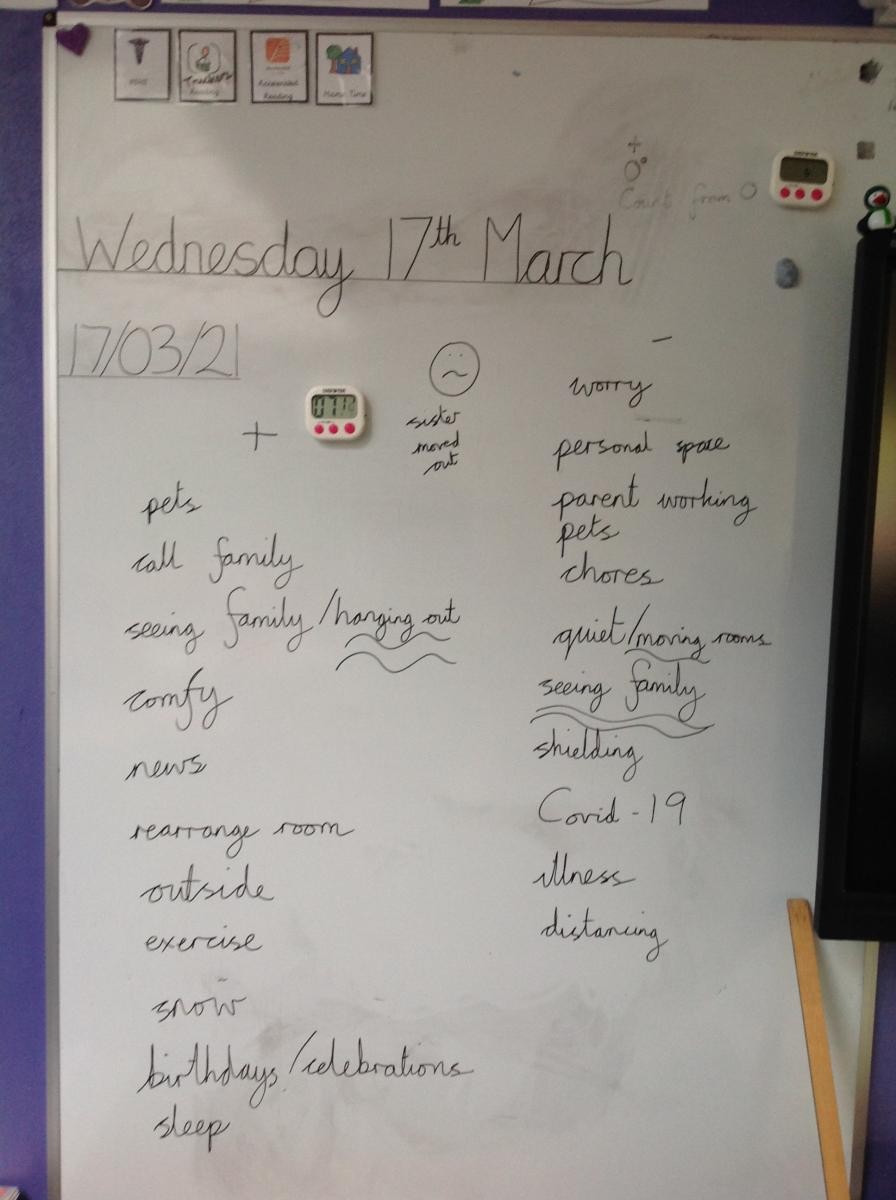 Reading
Accelerated
Reading
Home Time
+
0°
Count from 0
Wednesday 17th March
17/03/21
+
sister
moved
out
pets
call family
seeing family/hanging out
comfy
news
rearrange room
outside
exercise
snow
birthdays/celebrations
sleep
-
worry
personal space
parent working
pets
chores
quiet/moving rooms
seeing family
shielding
Covid-19
illness
distancing